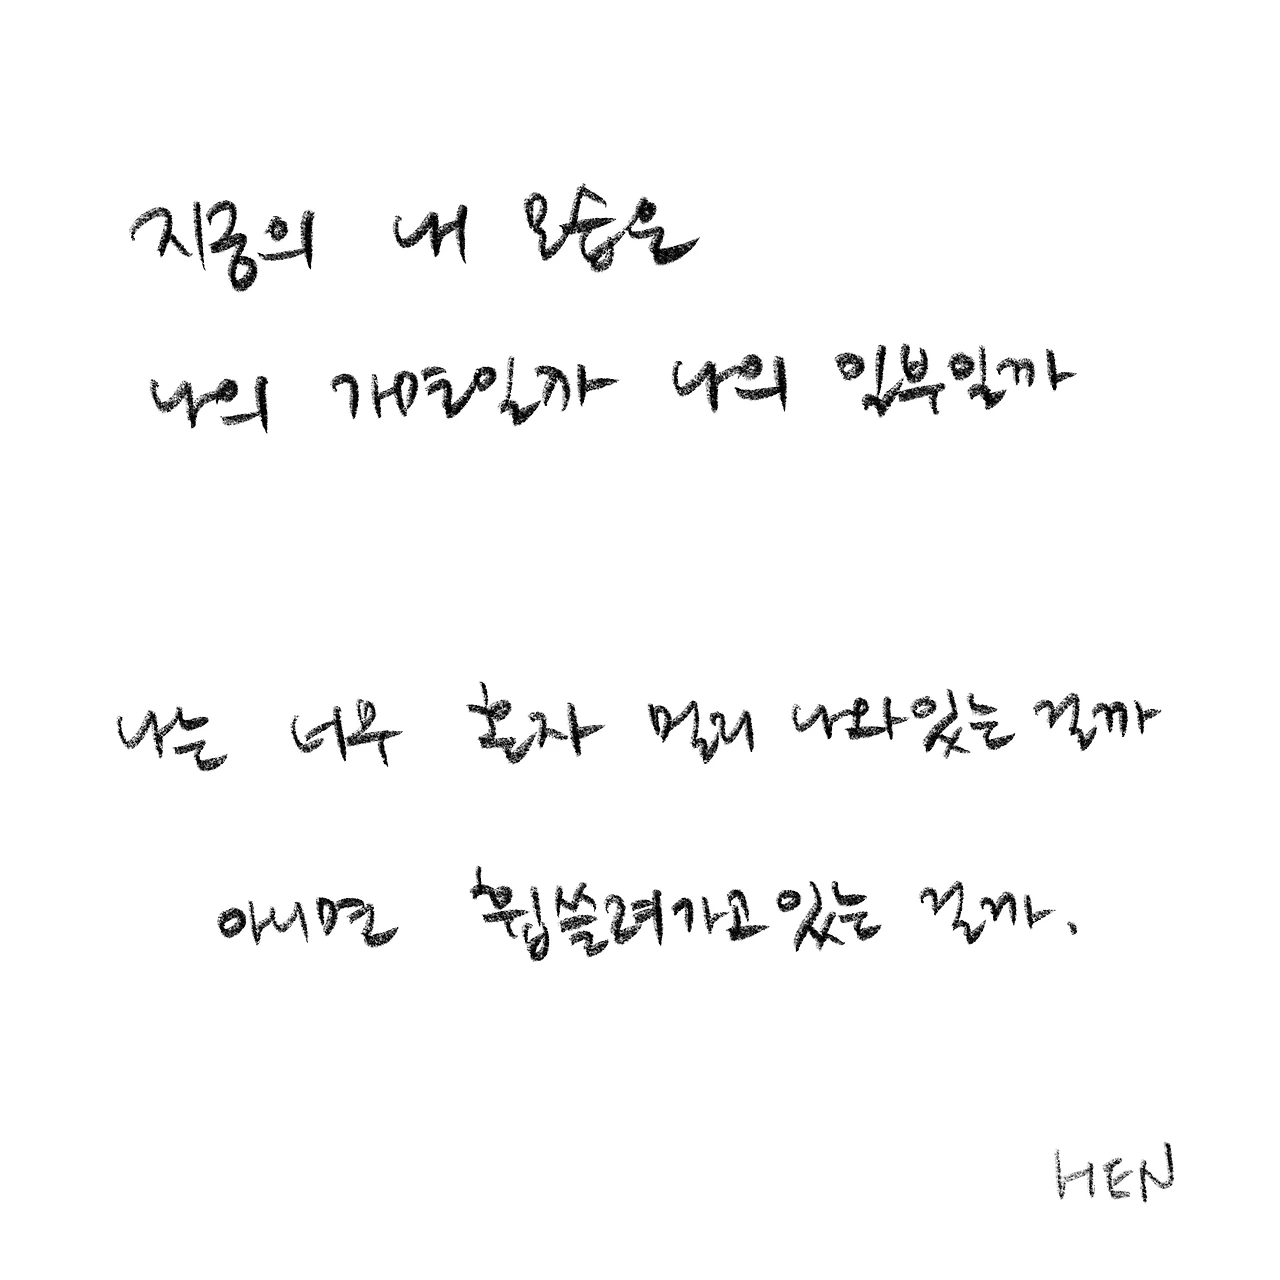 지금의 내 모습은
나의 가면일까 나의 일부일까
나는 너무 혼자 멀리 나와있는 걸까
아니면 휩쓸려가고있는 걸까.
HEN